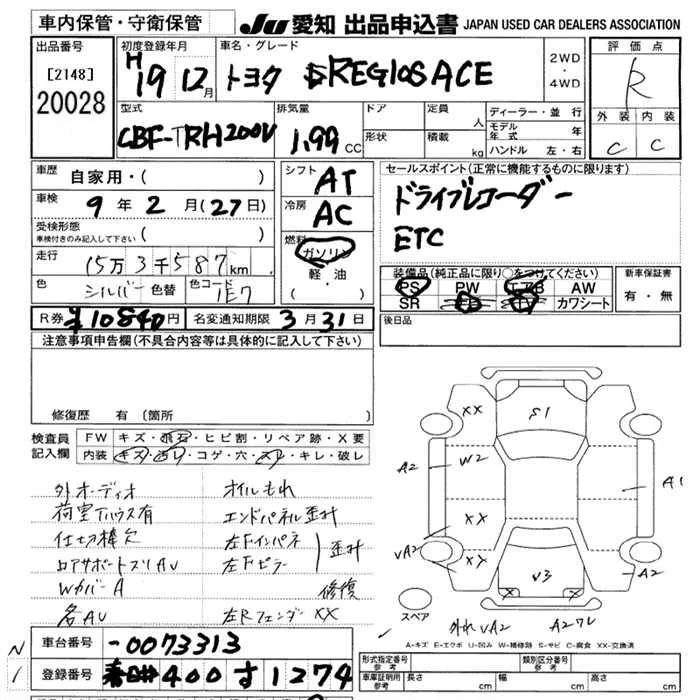 車内保管・守衛保管
JU 愛知 出品申込書 JAPAN USED CAR DEALERS ASSOCIATION
出品番号
[2148]
20028
初度登録年月
H19 12月
車名・グレード
トヨタ REGIOS ACE
2WD・4WD
評価点
R
外装 内装
C C
型式
CBF-TRH200V
排気量
1.99 CC
ドア
形状
定員 人
積載 kg
ディーラー・並行
モデル年式 年
ハンドル 左・右
車歴
自家用・( )
車検
9年2月(27日)
受検形態
車検付きのみ記入して下さい ( )
走行
15万3千587km
色 シルバー 色替
色コード 1E7
シフト AT
冷房 AC
燃料
ガソリン
軽・油
・( )
セールスポイント(正常に機能するものに限ります)
ドライブレコーダー
ETC
装備品(純正品に限り○をつけてください)
PS PW エアB AW
SR TV カワシート
新車保証書
有・無
R券 ¥10840円 名変通知期限 3月31日
後日品
注意事項申告欄(不具合内容等は具体的に記入して下さい)
修復歴 有 〔箇所 〕
検査員記入欄
FW キズ・飛石・ヒビ割・リペア跡・X要
内装 キズ・汚レ・コゲ・穴・スレ・キレ・破レ
外オーディオ オイルもれ
荷室Tハウス有 エンドパネル歪み
仕切棒欠 左Fインパネ
ロアサポートスリAU 左Fピラー
歪み
WカバーA 修復
名AU 左Rフェンダー XX
XX
S1
A2
W2
A1
XX
VA2
XX
A2
V3
X X
スペア
外れVA2 A2ワレ
A-キズ E-エクボ U-凹み W-補修跡 S-サビ C-腐食 XX-交換済
N
1
車台番号 -0073313
登録番号 春日井400す1274
形式指定番号
参考
類別区分番号
参考
車庫証明用
参考
長さ cm
幅 cm
高さ cm